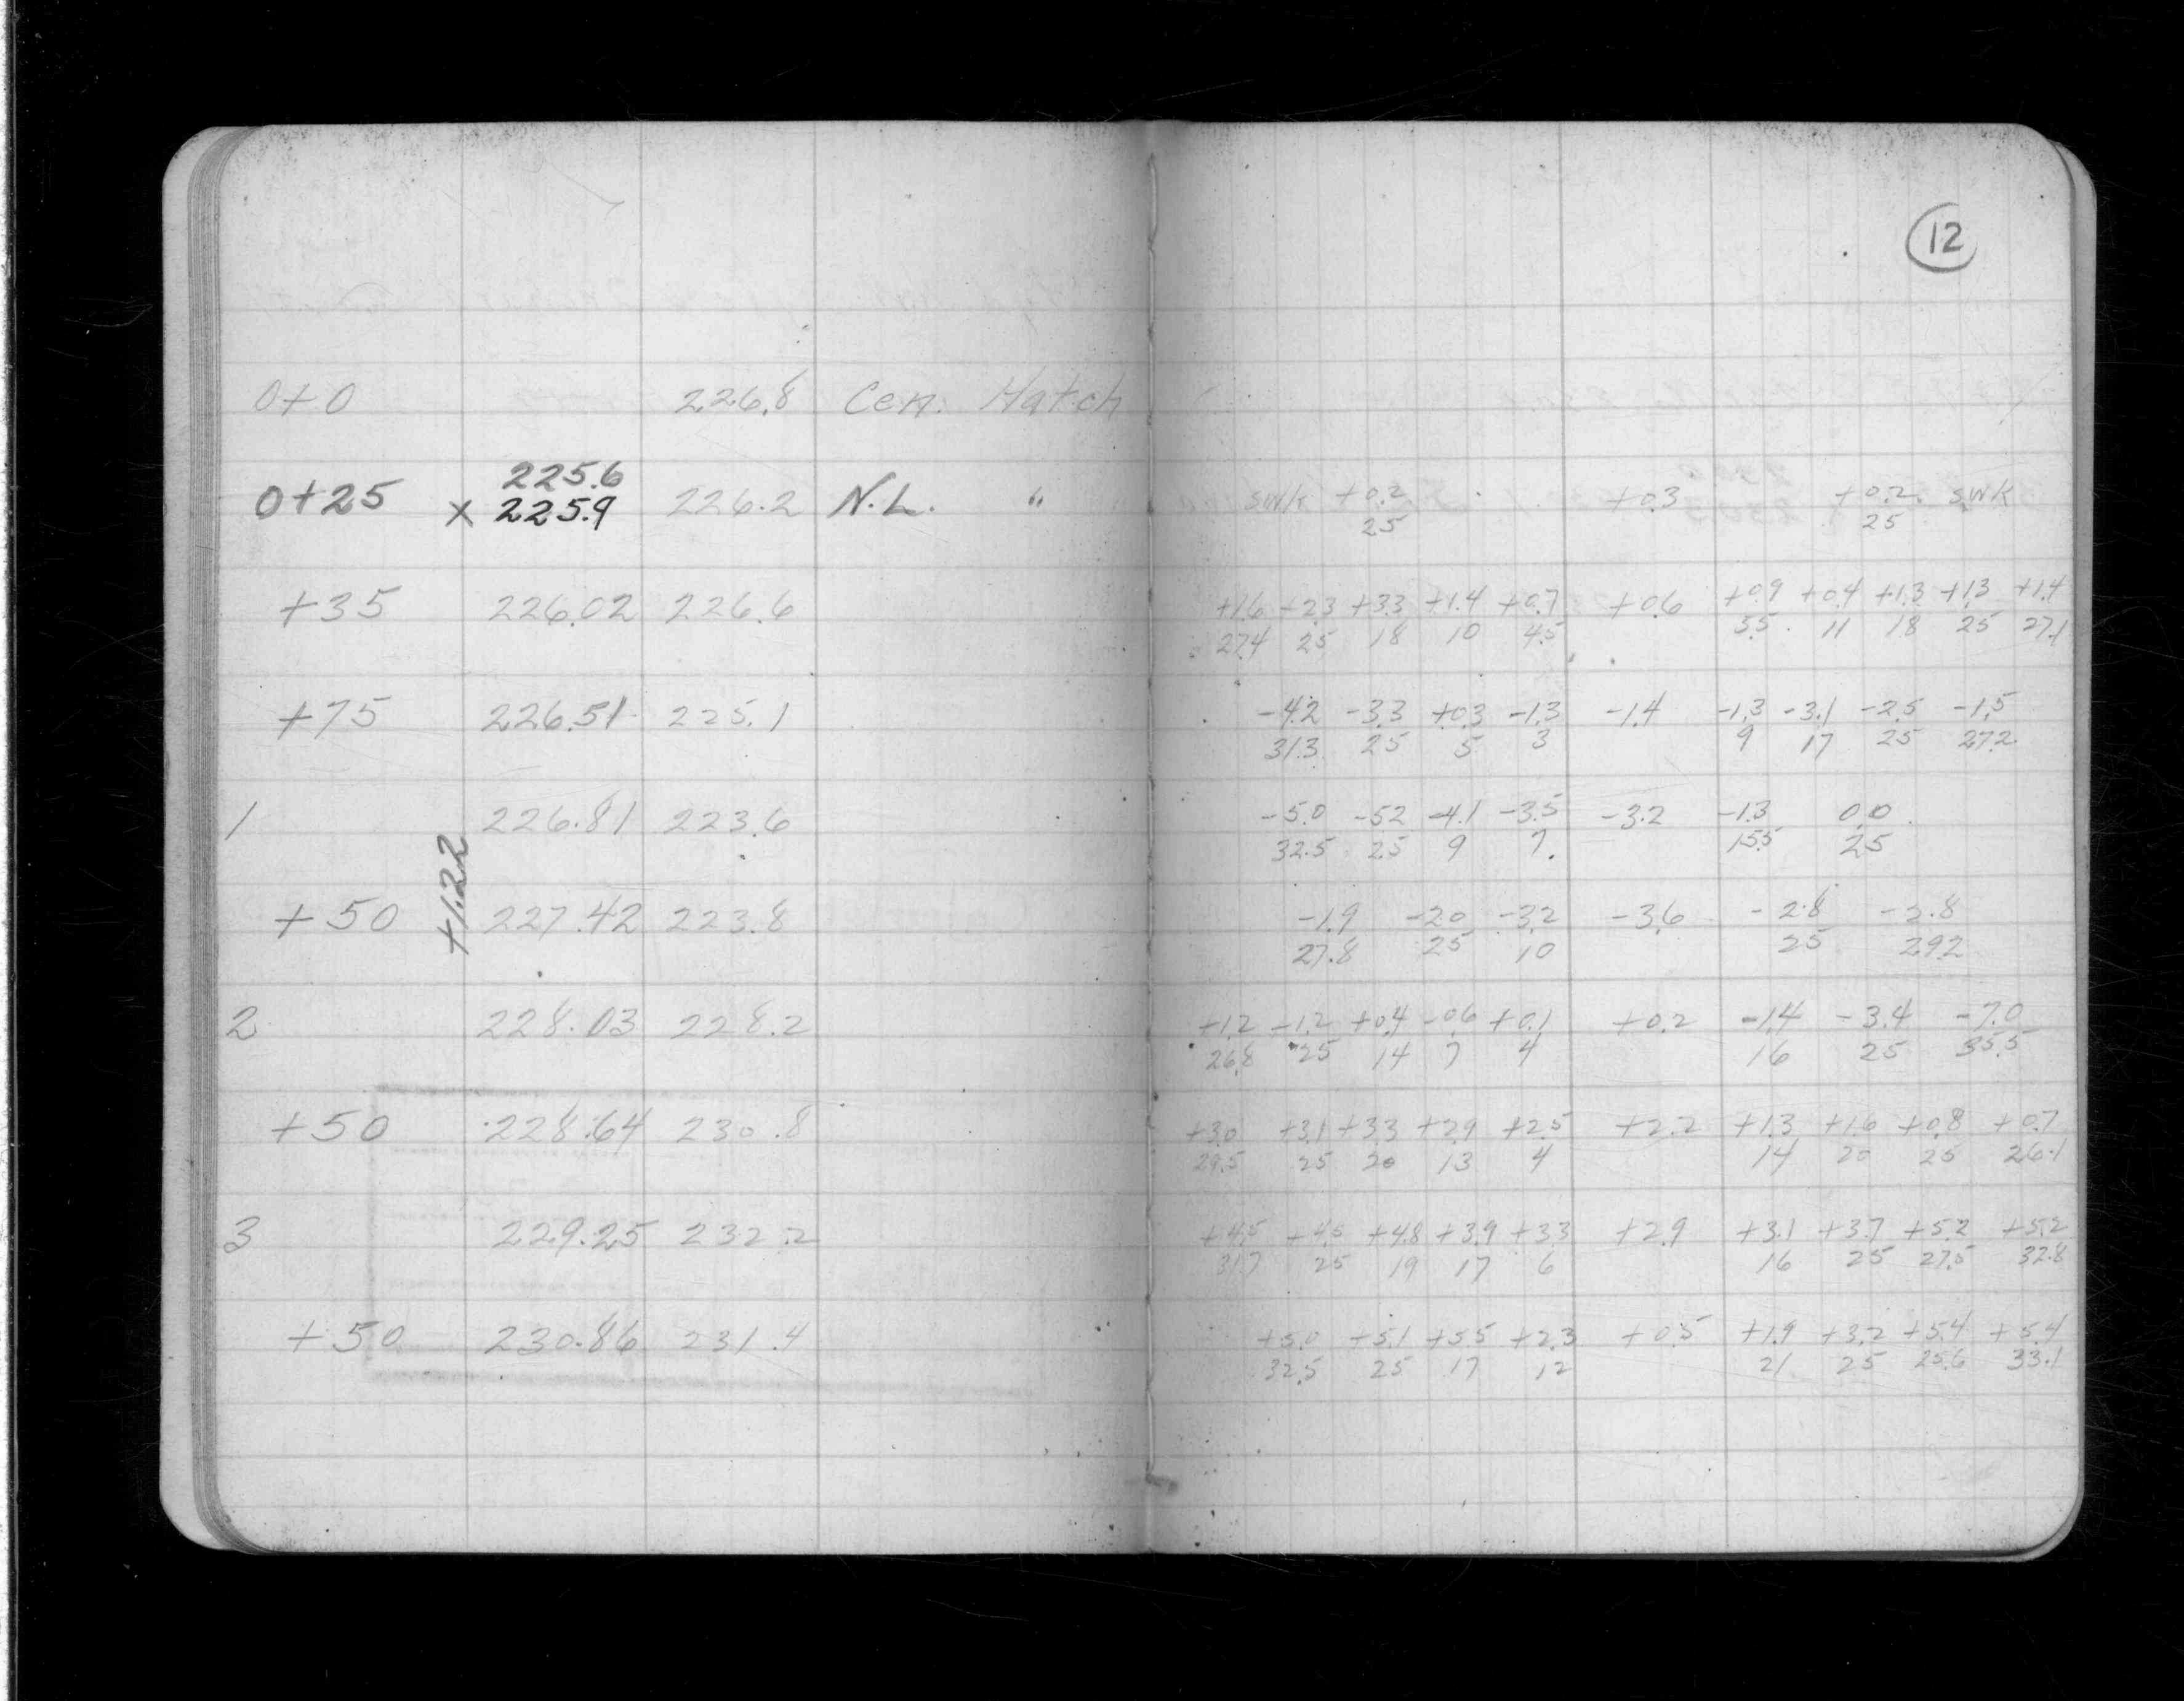 12
0+0 226.8 Cen. Hatch
225.6
0+25 x 225.9 226.2 N.L. " swk +0.2 +0.3 +0.2 swk
25 25
+35 226.02 226.6 +1.6 +2.3 +3.3 +1.4 +0.7 +0.6 +0.9 +0.4 +1.3 +1.3 +1.4
27.4 25 18 10 4.5 5.5 11 18 25 27.1
+75 226.51 225.1 -4.2 -3.3 +0.3 -1.3 -1.4 -1.3 -3.1 -2.5 -1.5
31.3 25 5 3 9 17 25 27.2
1 226.81 223.6 -5.0 -5.2 -4.1 -3.5 -3.2 -1.3 0.0
32.5 25 9 7 15.5 25
+1.22
+50 227.42 223.8 -1.9 -2.0 -3.2 -3.6 -2.8 -2.8
27.8 25 10 25 29.2
2 228.03 228.2 +1.2 -1.2 +0.4 -0.6 +0.1 +0.2 -1.4 -3.4 -7.0
26.8 25 14 7 4 16 25 35.5
+50 228.64 230.8 +3.0 +3.1 +3.3 +2.9 +2.5 +2.2 +1.3 +1.6 +0.8 +0.7
29.5 25 20 13 4 14 20 25 26.1
3 229.25 232.2 +4.5 +4.5 +4.8 +3.9 +3.3 +2.9 +3.1 +3.7 +5.2 +5.2
31.7 25 19 17 6 16 25 27.5 32.8
+50 230.86 231.4 +5.0 +5.1 +5.5 +2.3 +0.5 +1.9 +3.2 +5.4 +5.4
32.5 25 17 12 21 25 25.6 33.1